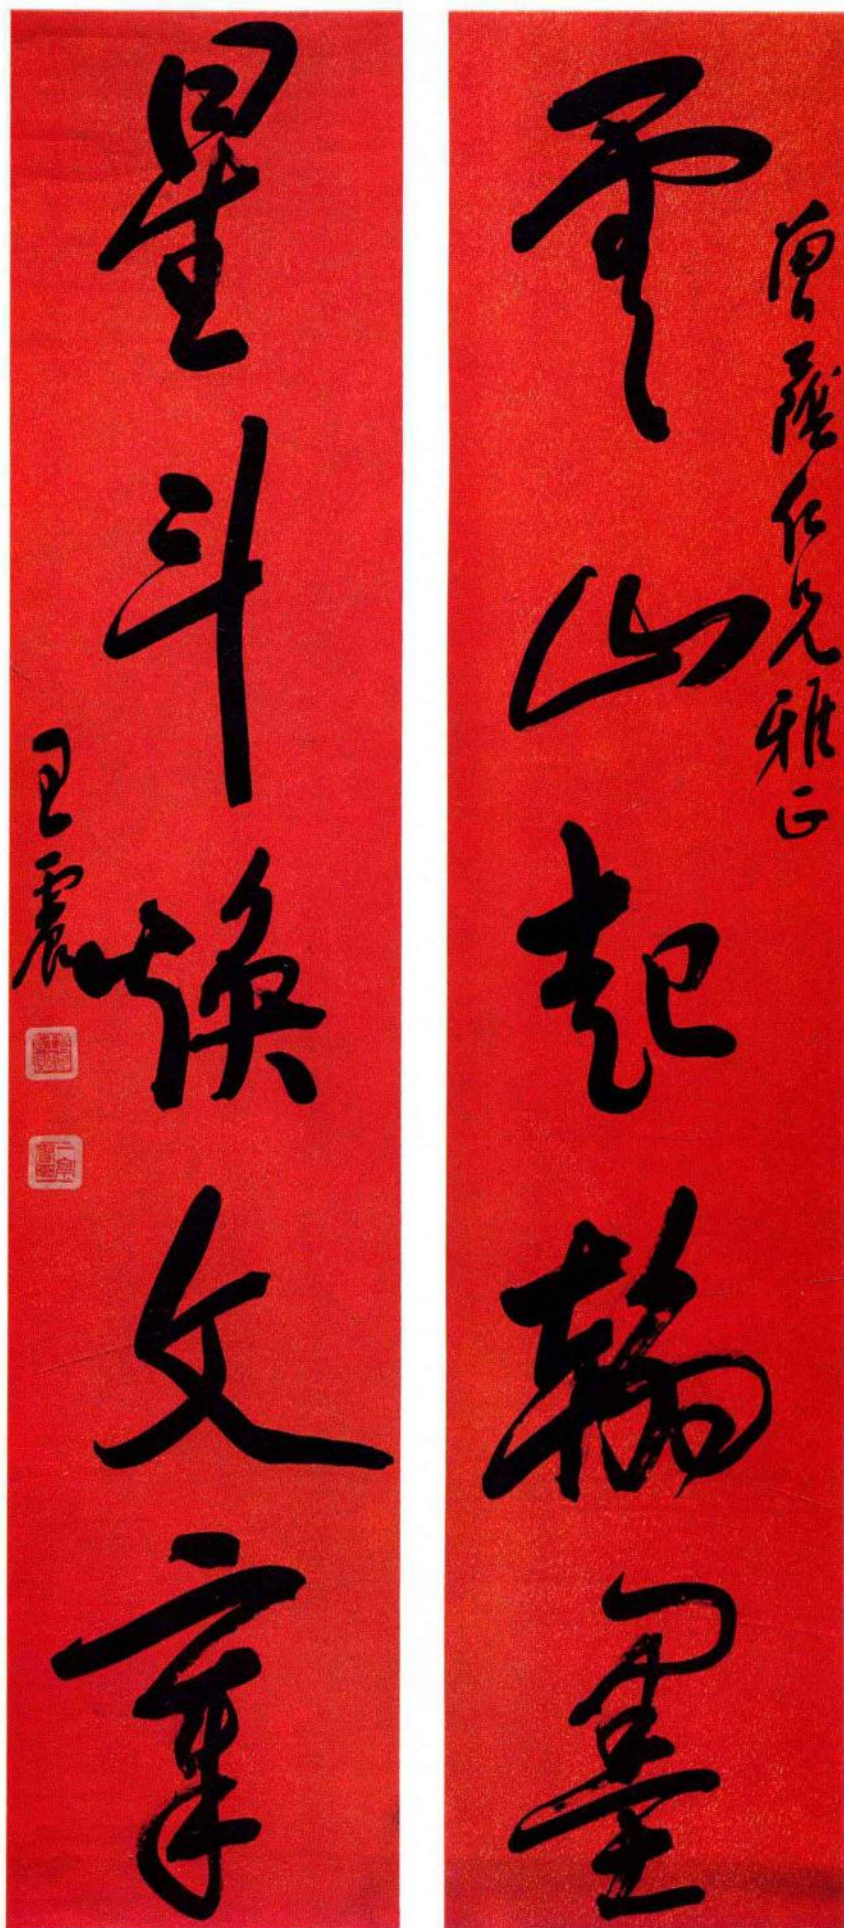 雲山起翰墨
曾蔭仁兄雅正
星斗煥文章
王震